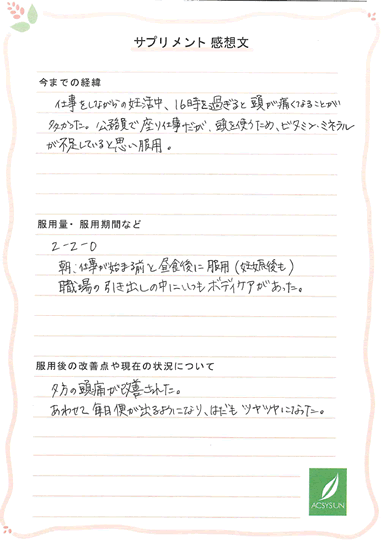 サプリメント 感想文
今までの経緯
仕事をしながらの妊活中、16時を過ぎると頭が痛くなることが
多かった。公務員で座り仕事だが、頭を使うため、ビタミン・ミネラル
が不足していると思い服用。
服用量・服用期間など
2-2-0
朝:仕事が始まる前と昼食後に服用(妊娠後も)
職場の引き出しの中にいつもボディケアがあった。
服用後の改善点や現在の状況について
夕方の頭痛が改善された。
あわせて毎日便が出るようになり、はだもツヤツヤになった。
ACSYSUN